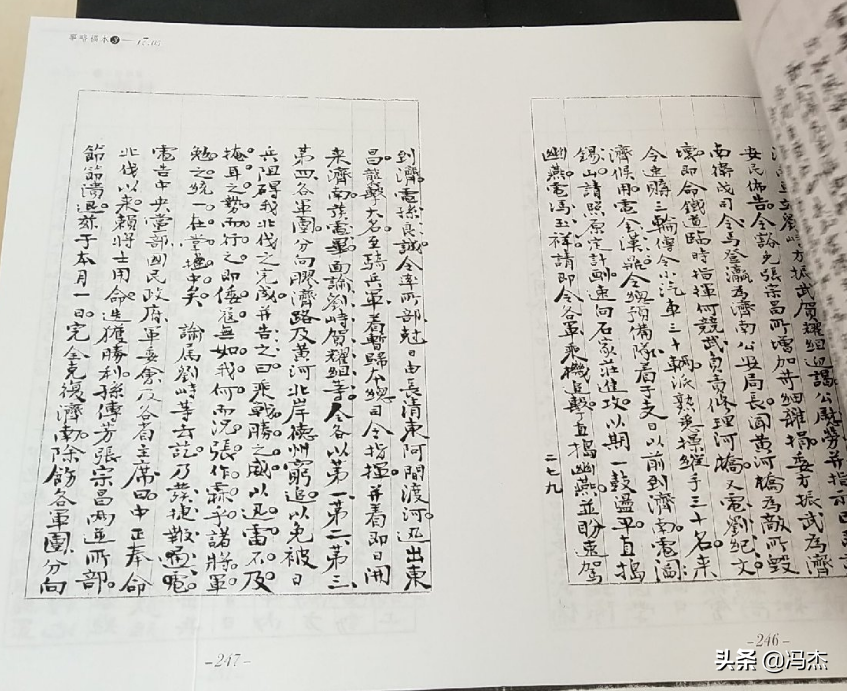 劉峙方振武賀耀組迎謁公慰勞并指示
安民佈告令豁免張宗昌所增加苛細雜捐委方振武為濟
南衛戍司令馬登瀛為濟南公安局長聞黃河橋為敵所毀
壞即命鐵道臨時指揮何競武負責修理河橋又電劉紀文
令速購三輪傳令小汽車三十輛派熟悉操縱手三十名來
濟候用電金漢鼎令總預備隊着于文日以前到濟南電閻
錫山請照原定計劃速向石家莊進攻以期一鼓盪平直搗
幽燕電馮玉祥請即令各軍乘機追擊直搗幽燕並盼速駕
二七九
-246-
到濟。電孫良誠令率所部尅日由長清東阿間渡河迅出東
昌截擊大名至騎兵軍着暫歸本總司令指揮并着即日開
來濟南旋電畢面諭劉峙賀耀組等令各以第一第二第三
第四各軍團分向膠濟路及黃河北岸德州窮追以免被日
兵阻碍我北伐之完成并告之曰乘戰勝之威以迅雷不及
掩耳之勢而行之即倭寇無如我何而況張作霖乎諸將軍
勉之統一在掌握中矣 諭 劉峙等去訖乃發捷報通電
電告中央黨部國民政府軍委會及各省主席曰中正奉命
北伐以來賴將士用命迭獲勝利孫傳芳張宗昌兩逆所部
節節潰退茲于本月一日完全克復濟南除飭各軍團分向
-247-
头条 @冯杰